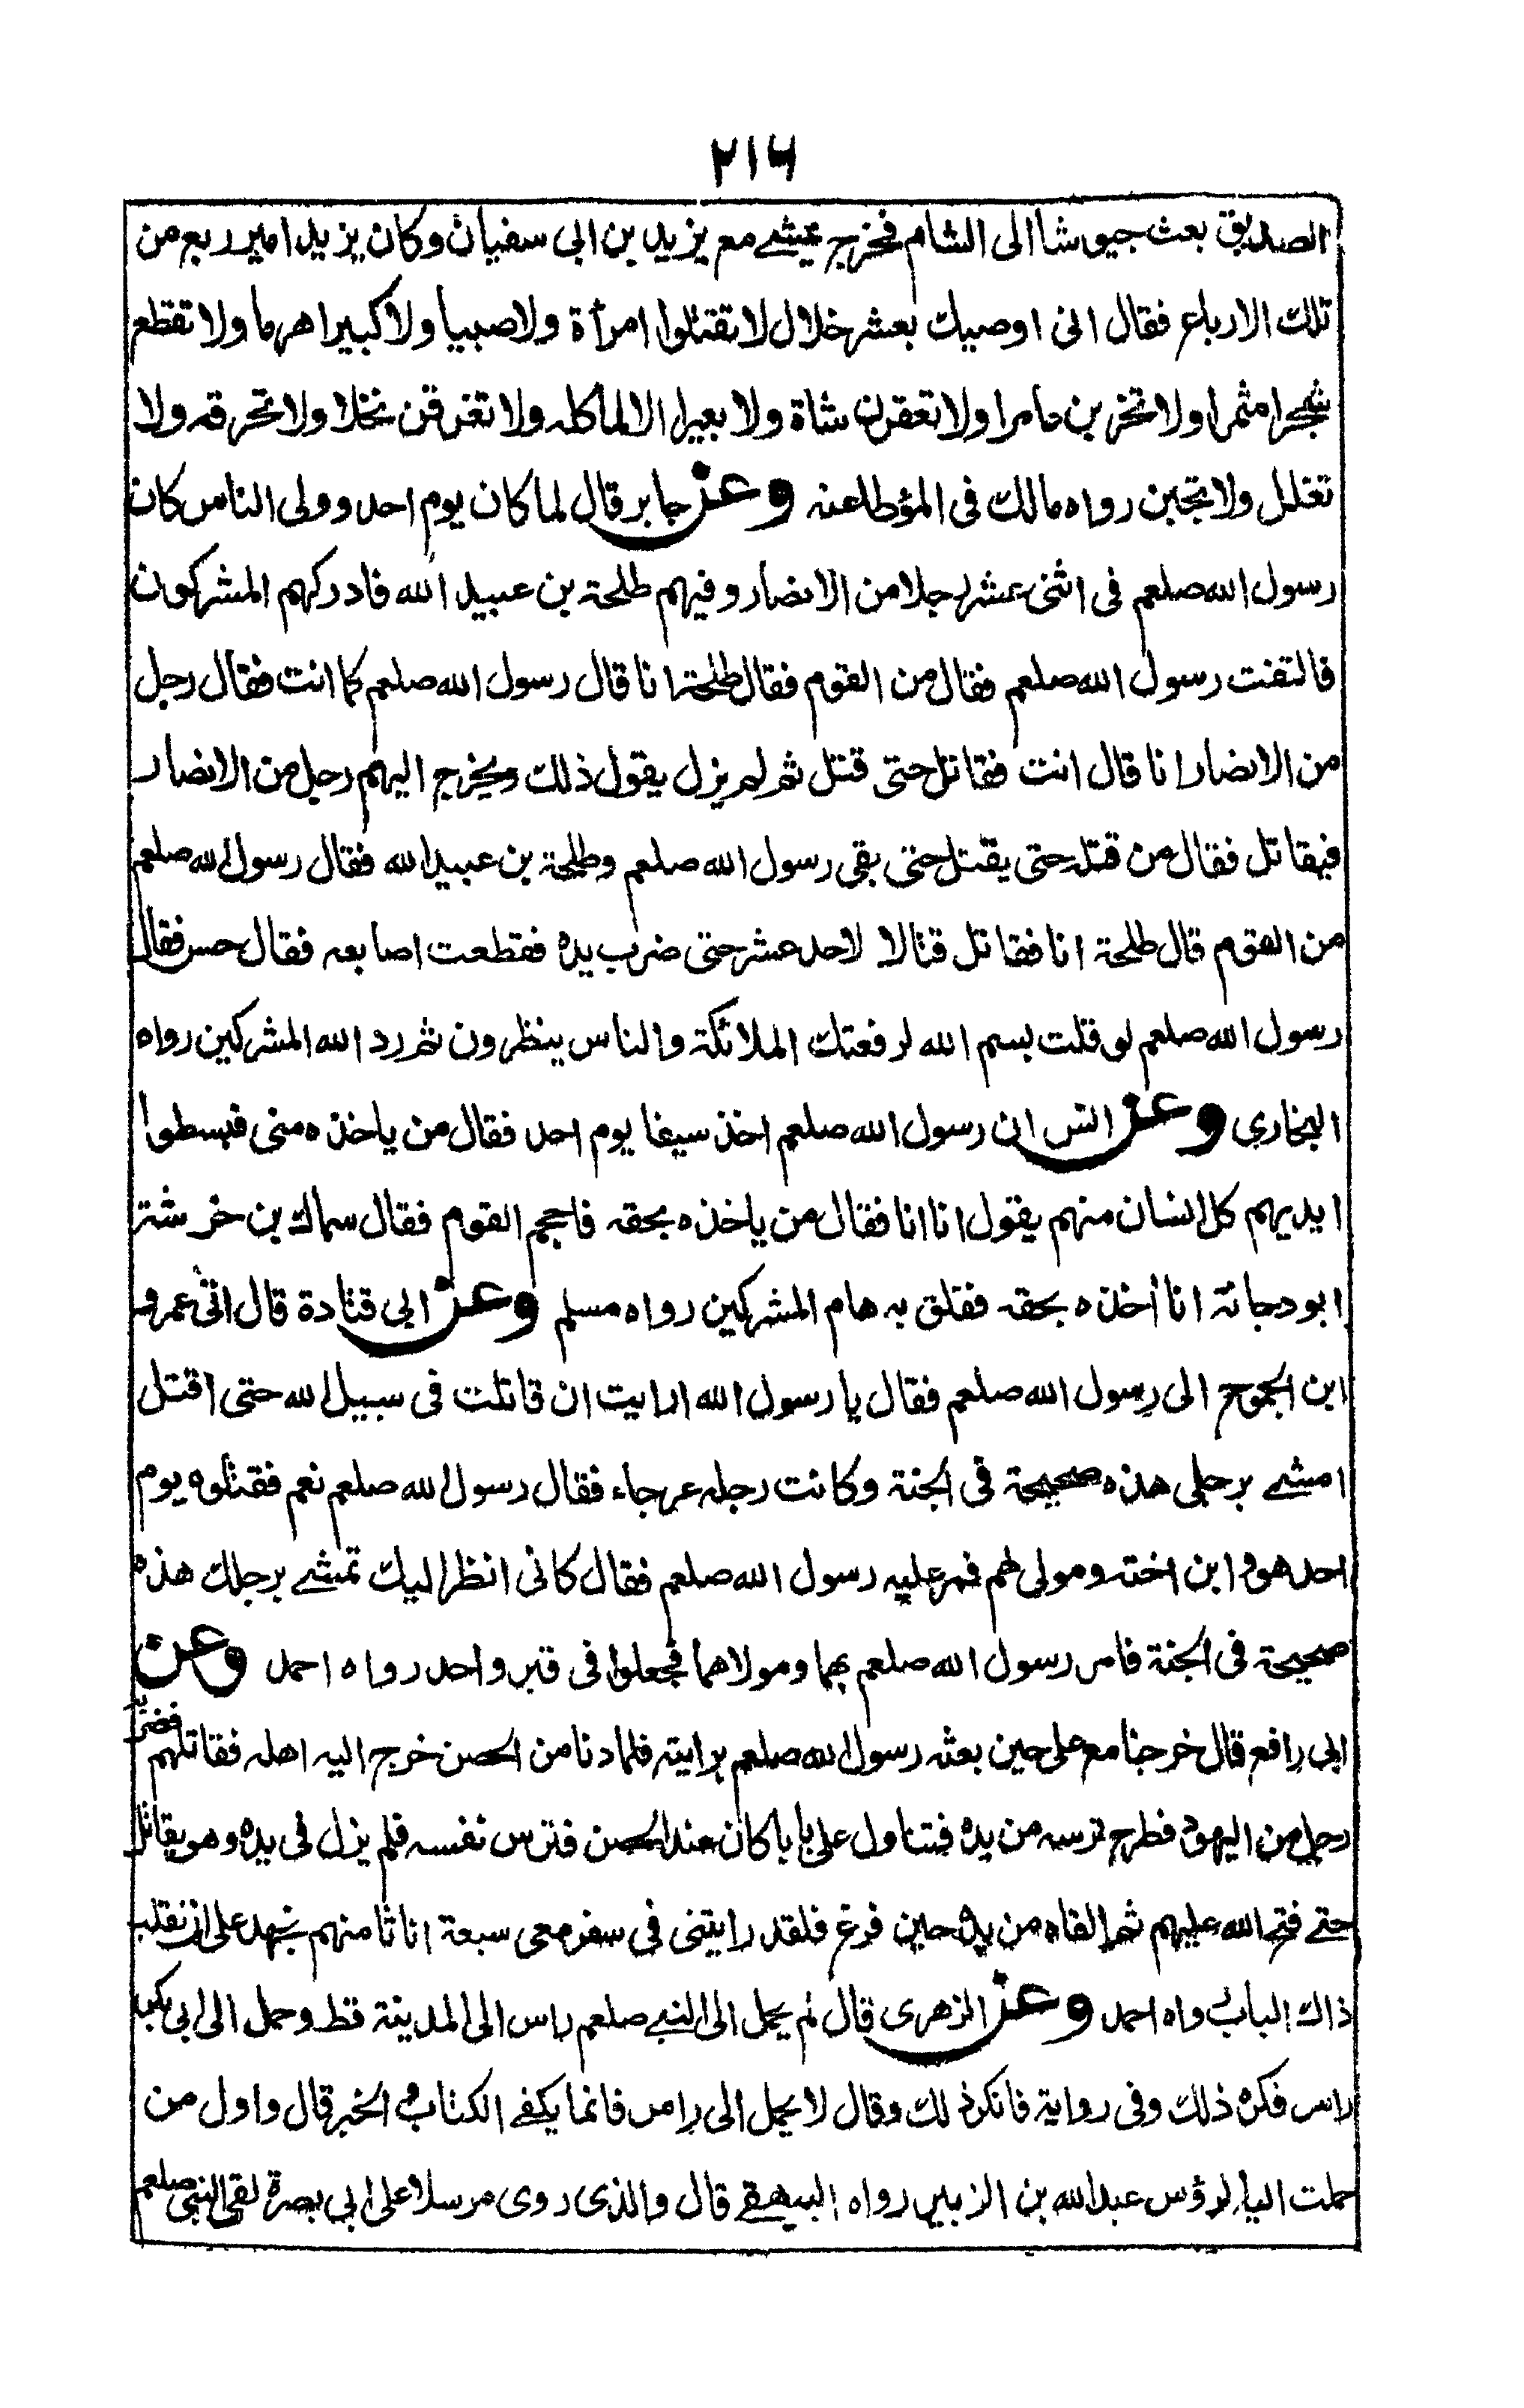 ٢١٦
الصديق بعث جيوشا الى الشام فخرج يمشے مع يزيد بن ابى سفيان وكان يزيد امير ربع من
تلك الارباع فقال انى اوصيك بعشر خلال لا تقتلوا امرأة ولا صبيا ولا كبيرا هرما ولا تقطع
شجرا مثمرا ولا تخربن عامرا ولا تعقرن شاة ولا بعيرا الا لمأكله ولا تغرقن نخلا ولا تحرقه ولا
تغلل ولا تجبن رواه مالك فى المؤطا عنه وعن جابر قال لما كان يوم احد وولى الناس كان
رسول الله صلعم فى اثنى عشر رجلا من الانصار وفيهم طلحة بن عبيد الله فادركهم المشركون
فالتفت رسول الله صلعم فقال من القوم فقال طلحة انا قال رسول الله صلعم كما انت فقال رجل
من الانصار انا قال انت فقاتل حتى قتل ثم لم يزل يقول ذلك ويخرج اليهم رجل من الانصار
فيقاتل فقال من قتله حتى يقتل حتى بقى رسول الله صلعم وطلحة بن عبيد الله فقال رسول الله صلعم
من القوم قال طلحة انا فقاتل قتالا لاحد عشر حتى ضرب يده فقطعت اصابعه فقال حس فقال
رسول الله صلعم لو قلت بسم الله لرفعتك الملائكة والناس ينظرون ثم رد الله المشركين رواه
البخارى وعن انس ان رسول الله صلعم اخذ سيفا يوم احد فقال من ياخذه منى فبسطوا
ايديهم كل انسان منهم يقول انا انا فقال من ياخذه بحقه فاحجم القوم فقال سماك بن خرشة
ابو دجانة انا أخذه بحقه ففلق به هام المشركين رواه مسلم وعن ابى قتادة قال اتى عمرو
ابن الجموح الى رسول الله صلعم فقال يا رسول الله ارايت ان قاتلت فى سبيل الله حتى اقتل
امشے برجلى هذه صحيحة فى الجنة وكانت رجله عرجاء فقال رسول الله صلعم نعم فقتلوه يوم
احد هو وابن اخته ومولى لهم فمر عليه رسول الله صلعم فقال كانى انظر اليك تمشے برجلك هذه
صحيحة فى الجنة فامر رسول الله صلعم بهما ومولاهما فجعلوا فى قبر واحد رواه احمد وعن
ابى رافع قال خرجنا مع على حين بعثه رسول الله صلعم برايته فلما دنا من الحصن خرج اليه اهله فقاتلهم فضربه
رجل من اليهود فطرح ترسه من يده فتناول على بابا كان عند الحصن فترس نفسه فلم يزل فى يده وهو يقاتل
حتے فتح الله عليهم ثم القاه من يده حين فرغ فلقد رايتنى فى سفر معى سبعة انا ثامنهم نجهد على ان نقلب
ذاك الباب رواه احمد وعن الزهرى قال لم يحمل الى النبے صلعم راس الى المدينة قط وحمل الى ابى بكر
راس فكره ذلك وفى رواية فانكر ذلك وقال لا يحمل الى راس فانما يكفے الكتاب والخبر قال واول من
حملت اليه الرؤس عبد الله بن الزبير رواه البيهقے قال والذى روى مرسلا على ابى بصرة لقى النبى صلعم